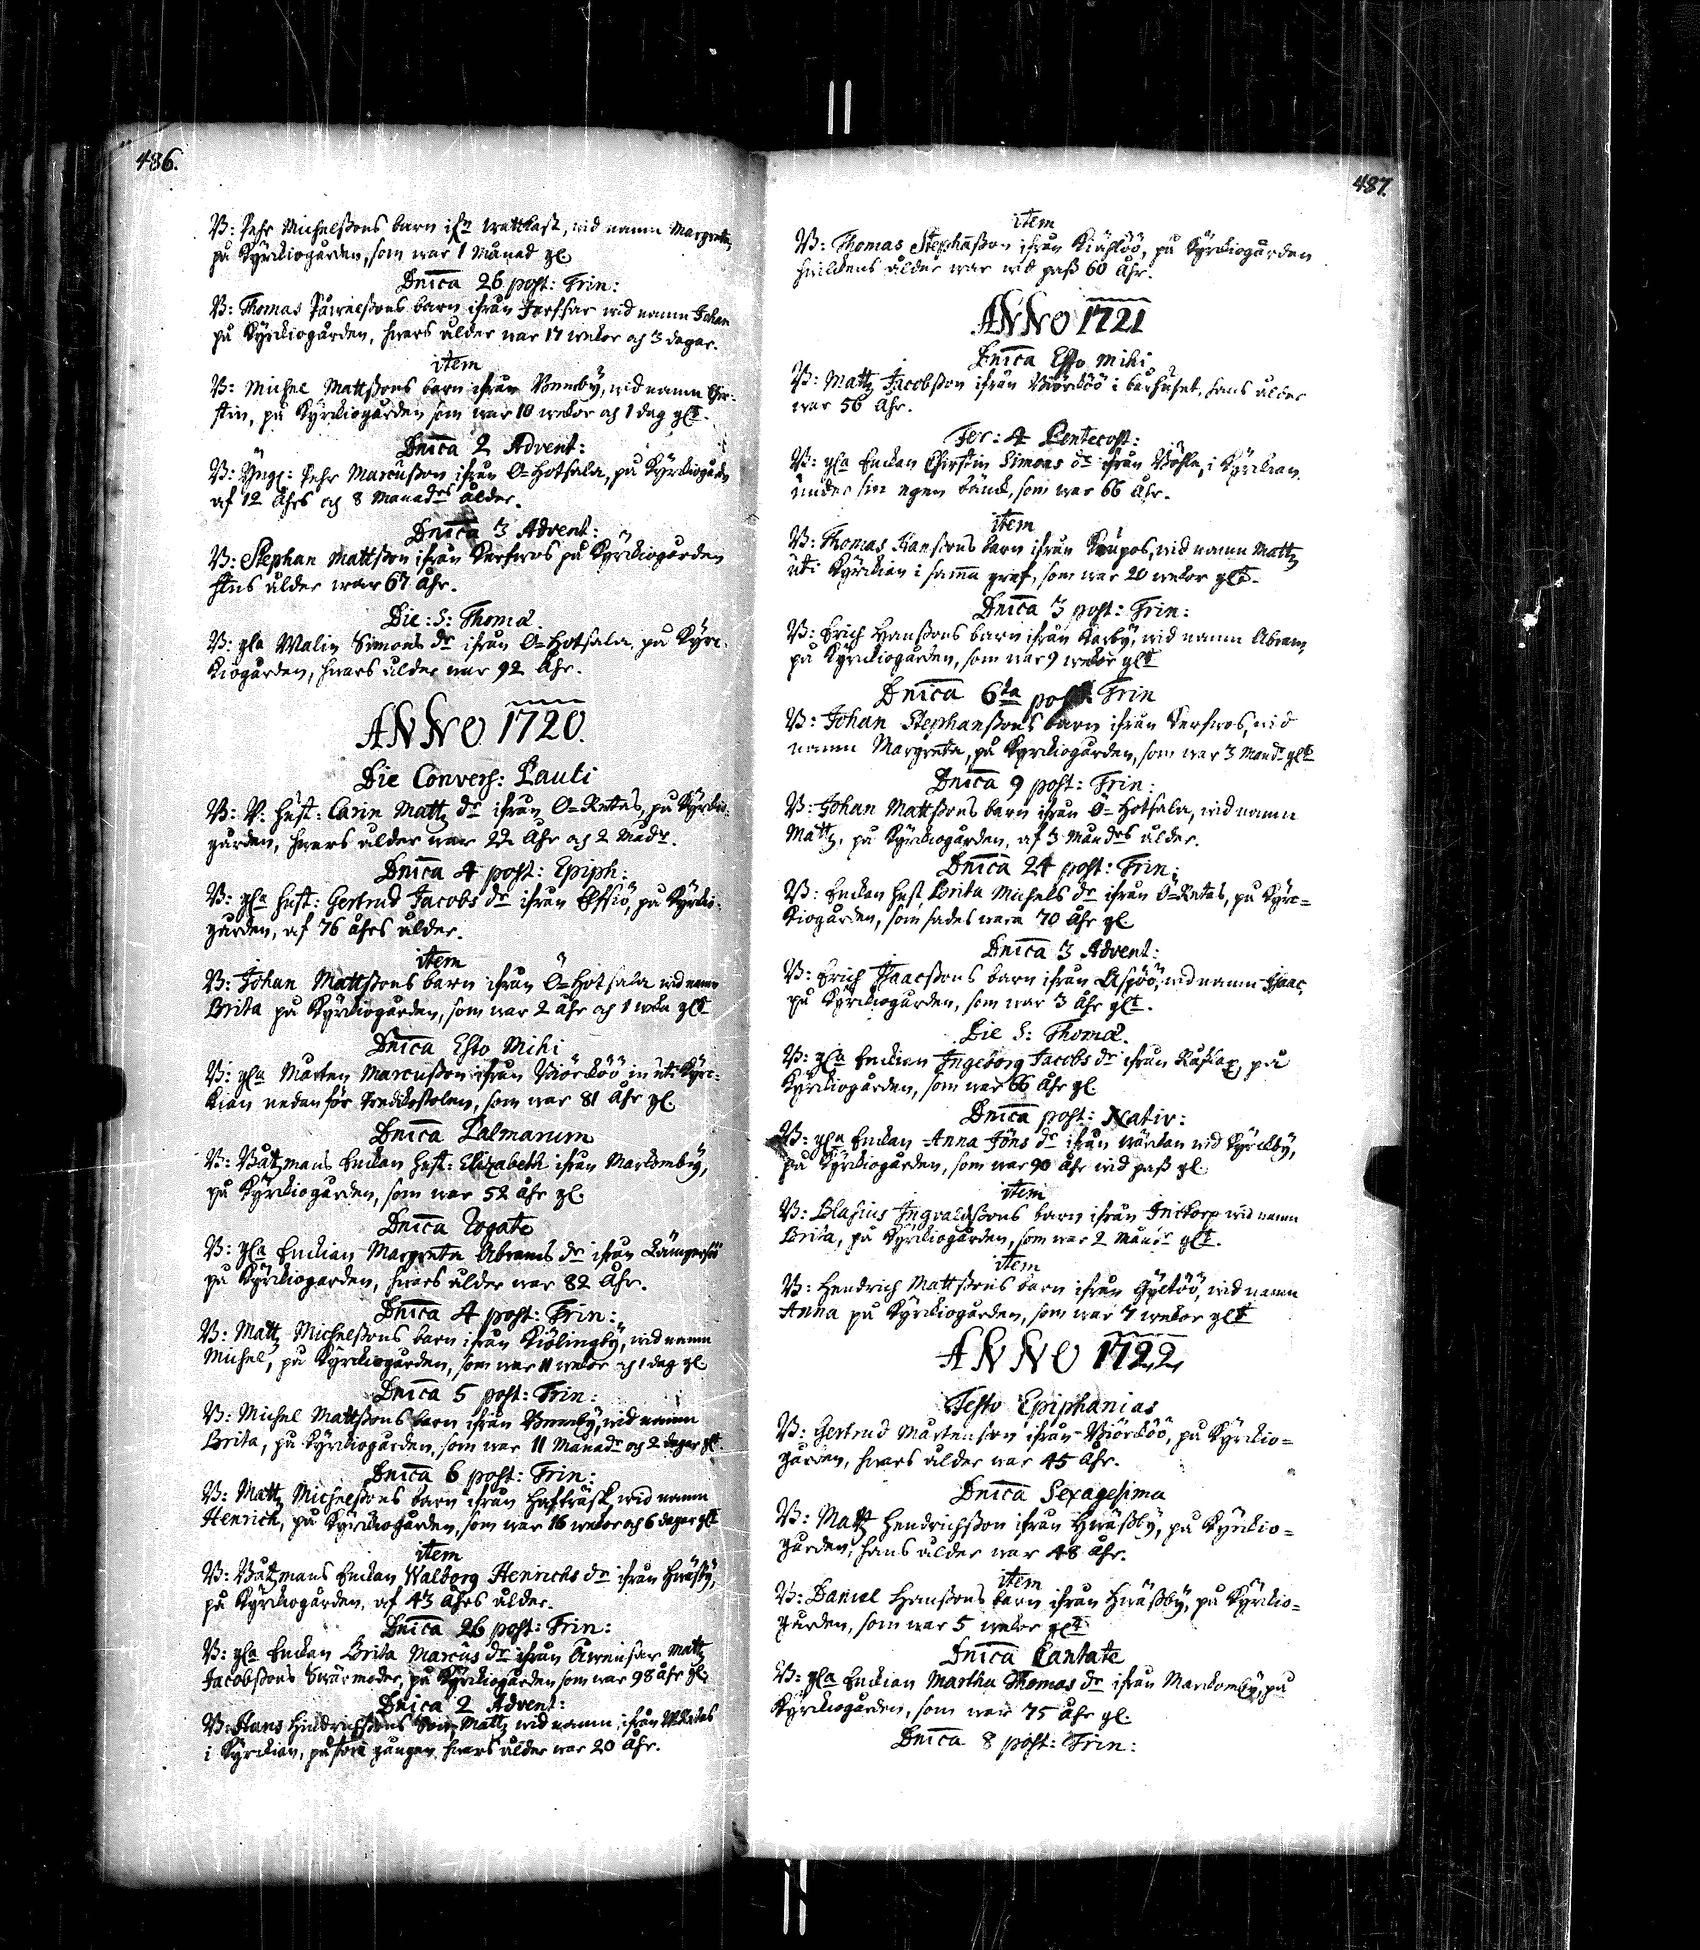 486.
B: Pehr Michelßons barn ifn wattkast, wid namn Margreta,
på Kÿrkiogården, som war 1 Månad gl
Dnica 26 post: Trin:
B: Thomas Påwelßons barn ifrån Jerfsar wid namn Johan
på Kÿrkiogården, hwars ålder war 17 wekor och 3 dagar.
item
B: Michel Mattßons barn ifrån wid namn Chir-
stin, på Kÿrkiogården som war 10 wekor och 1 dag glt.
Dnica 2 Advent:
B: Ÿngl: Pehr Marcußon ifrån O=Hotsala, på Kÿrkiogården
af 12 Åhrs och 8 Månadrs ålder.
Dnica 3 Advent:
B: Stephan Mattßon ifrån Kerfwos på Kÿrkiogården
hans ålder war 67 Åhr.
Die: S: Thomæ.
B: gla Malin Simons dr ifrån O=Hotsala, på Kÿrc-
kiogården, hwars ålder war 92 Åhr.
ANNO. 1720.
Die Convers: Pauli
B: P: hust: Carin Matz dr ifrån O=Rettas, på Kÿrkio-
gården, hwars ålder war 22 Åhr och 2 Mådr.
Dnica 4 post: Epiph:
B: gla hust: Gertrud Jacobs dr ifrån på Kÿrkio-
gården, af 76 åhrs ålder.
item
B: Johan Mattßons barn ifrån Ö=Hotsala wid namn
Brita på Kÿrkiogården, som war 2 åhr och 1 weka glt
Dnica Esto Mihi
B: gla Mårten Marcußon ifrån Biörköö in uti Kÿrc-
kian nedanför Predikostolen, som war 81 Åhr gl
Dnica Palmarum
B: Båtzmans Enckan hust: Elizabeth ifrån Markombÿ,
på Kÿrkiogården, som war 52 åhr gl.
Dnica Rogate
B: gla Enckian Margreta Abrams dr ifrån
på Kÿrkiogården, hwars ålder war 82 Åhr.
Dnica 4 post: Trin:
B: Matz Michelßons barn ifrån Kiölingbÿ, wid namn
Michel, på Kÿrkiogården, som war 11 wekor och 1 dag gl
Dnica 5 post: Trin:
B: Michel Mattßons barn ifrån wid namn
Brita, på Kÿrkiogården, som war 11 Månadr och 2 dagar glt.
Dnica 6 post: Trin:
B: Matz Michelßons barn ifrån Hafträsk, wid namn
Henrich, på Kÿrkiogården, som war 16 wekor och 6 dagar glt
item
B: Båtzmans Enckan Walborg Henrichs dr ifrån Hwäßbÿ,
på Kÿrkiogården, af 43 Åhrs ålder.
Dnica 26 post: Trin:
B: gla Enckan Brita Marcus dr ifrån Matz
Jacobßons Swärmoder, på Kÿrkiogården som war 98 åhr gl.
Dnica 2 Advent:
B: Hans Hindrichßons Son Matz wid namn, ifrån
i Kÿrkian, på gången, hwars ålder war 20 Åhr.
487.
item
B: Thomas Stephanßon ifrån Kiählöö, på Kÿrkiogården
hwilckens ålder war wid paß 60 Åhr.
ANNO 1721
Dnica Esto mihi
B: Matz Jacobßon ifrån Biörköö i bårhuset, hans ålder
war 56 Åhr.
Fer: 4 Pentecost:
B: gla Enckan Chirstin Simons dr ifrån Böhle, i Kÿrkian
under sin egen bänck, som war 66 Åhr.
item
B: Thomas Hanßons barn ifrån Kaupos, wid namn Matz
uti Kÿrkian i sama graf, som war 20 wekor glt.
Dnica 3 post: Trin:
B: Erich Hanßons barn ifrån Karbÿ, wid namn Abram
på Kÿrkiogården, som war 9 wekor glt
Dnica 6ta post: Trin
B: Johan Stephanßons barn ifrån Kerfwos, wid
namn Margreta, på Kÿrkiogården, som war 3 Månadr glt
Dnica 9 post: Trin:
B: Johan Mattßons barn ifrån Ö=Hotsala, wid namn
Matz, på Kÿrkiogården, af 3 Månadrs ålder.
Dnica 24 post: Trin:
B: Enckan hust Brita Michels dr ifrån Ö=Retas, på Kÿrc=
kiogården, som sades wara 70 Åhr gl
Dnica 3 Advent:
B: Erich Isaacßons barn ifrån Aspöö, wid namn Isaac,
på Kÿrkiogården, som war 3 Åhr glt.
Die S: Thomæ.
B: gla Enckian Ingeborg Jacobs dr ifrån Rafkax, på
Kÿrkiogården, som war 66 Åhr gl
Dnica post: Nativ:
B: gla Enckan Anna Jöns dr ifrån wid Kÿrckbÿ,
på Kÿrkiogården, som war 90 Åhr wid paß gl
item
B: Blasius Ingvaldßons barn ifrån Inikorp wid namn
Brita, på Kÿrkiogården, som war 2 Månadr glt.
item
B: Hendrich Mattßons barn ifrån Gÿltöö, wid namn
Anna på Kÿrkiogården, som war 7 wekor glt
ANNO 1722,
Festo Epiphanias
B: Gertrud Mårtenson ifrån Biörköö, på Kÿrkio=
gården, hwars ålder war 45 Åhr.
Dnica Sexagesima
B: Matz Hendrichßon ifrån Hwäßbÿ, på Kÿrkio=
gården, hans ålder war 48 Åhr.
item
B: Daniel Hanßons barn ifrån Hwäßbÿ, på Kÿrkio=
gården, som war 5 wekor glt.
Dnica Cantate
B: gla Enckian Martha Thomas dr ifrån Markombÿ, på
Kÿrkiogården, som war 75 Åhr gl.
Dnica 8 post: Trin: